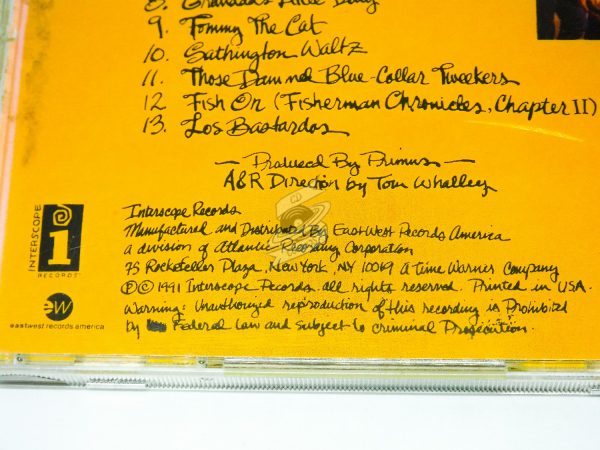 8. Grandad's Little Ditty
9. Tommy The Cat
10. Sathington Waltz
11. Those Damned Blue-Collar Tweekers
12. Fish On (Fisherman Chronicles, Chapter II)
13. Los Bastardos
— Produced By Primus —
A&R Direction by Tom Whalley
Interscope Records
Manufactured and Distributed By EastWest Records America
a division of Atlantic Recording Corporation
75 Rockefeller Plaza, New York, NY 10019 A Time Warner Company
℗© 1991 Interscope Records. all rights reserved. Printed in U.S.A.
Warning: Unauthorized reproduction of this recording is Prohibited
by Federal law and subject to criminal Prosecution.
INTERSCOPE
i
RECORDS
ew
eastwest records america
CD